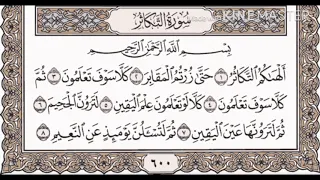 KINEMASTER
سُورَةُ التَّكَاثُرِ
بِسْمِ اللَّهِ الرَّحْمَٰنِ الرَّحِيمِ
أَلْهَىٰكُمُ التَّكَاثُرُ ١ حَتَّىٰ زُرْتُمُ الْمَقَابِرَ ٢ كَلَّا سَوْفَ تَعْلَمُونَ ٣ ثُمَّ
كَلَّا سَوْفَ تَعْلَمُونَ ٤ كَلَّا لَوْ تَعْلَمُونَ عِلْمَ الْيَقِينِ ٥ لَتَرَوُنَّ الْجَحِيمَ ٦
ثُمَّ لَتَرَوُنَّهَا عَيْنَ الْيَقِينِ ٧ ثُمَّ لَتُسْـَٔلُنَّ يَوْمَئِذٍ عَنِ النَّعِيمِ ٨
٦٠٠